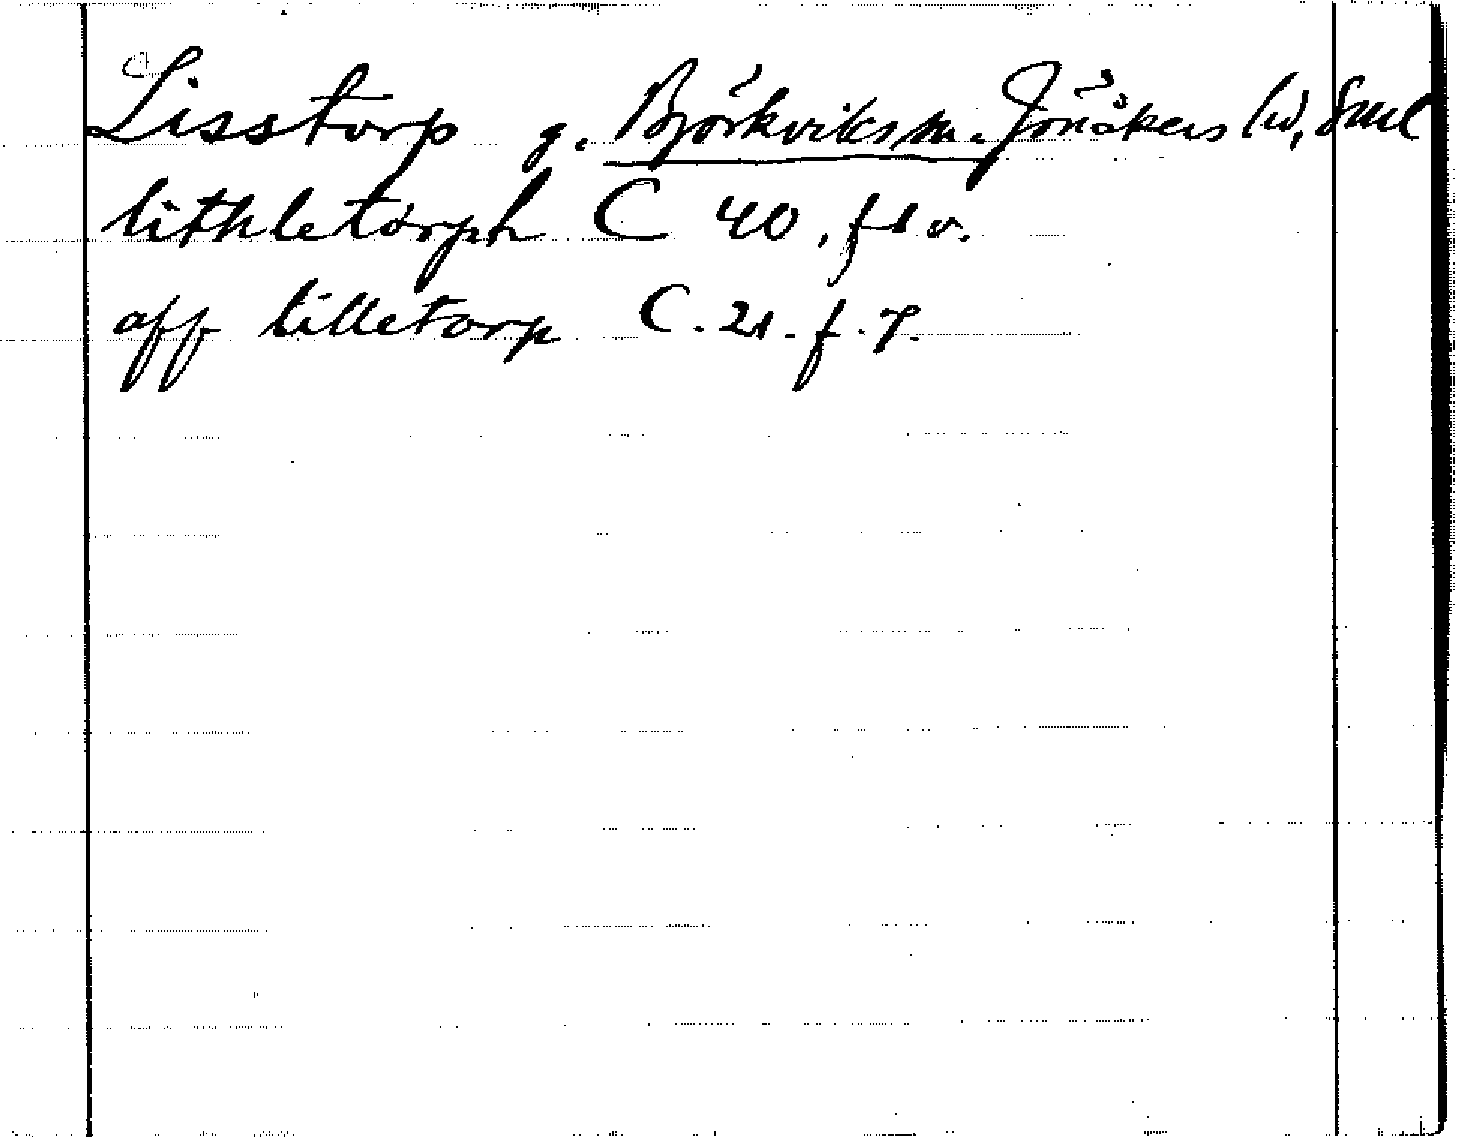 Lisstorp g. Björkviks sn. Jönåkers hd, Śml
lithletorph C 40, f 1 v.
aff lilletorp C. 21. f. 7.